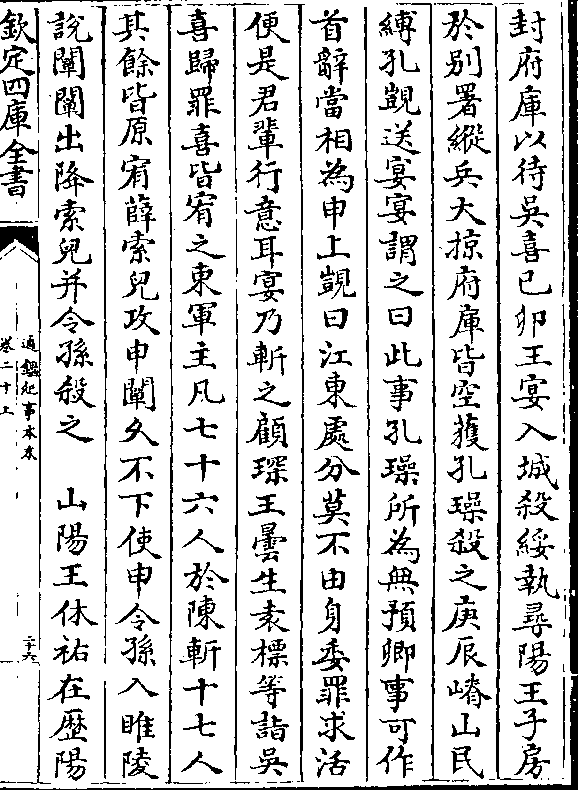 封府庫以待吳喜己卯王宴入城殺綏執尋陽王子房
於别署縱兵大掠府庫皆空獲孔璪殺之庚辰嵴山民
縛孔覬送宴宴謂之曰此事孔璪所為無預卿事可作
首辭當相為申上覬曰江東處分莫不由身委罪求活
便是君輩行意耳宴乃斬之顧琛王曇生袁標等詣吳
喜歸罪喜皆宥之東軍主凡七十六人於陳斬十七人
其餘皆原宥薛索兒攻申闡久不下使申令孫入睢陵
說闡闡出降索兒并令孫殺之　山陽王休祐在歷陽
欽定四庫全書
通鑑紀事本末
卷二十上
二十六